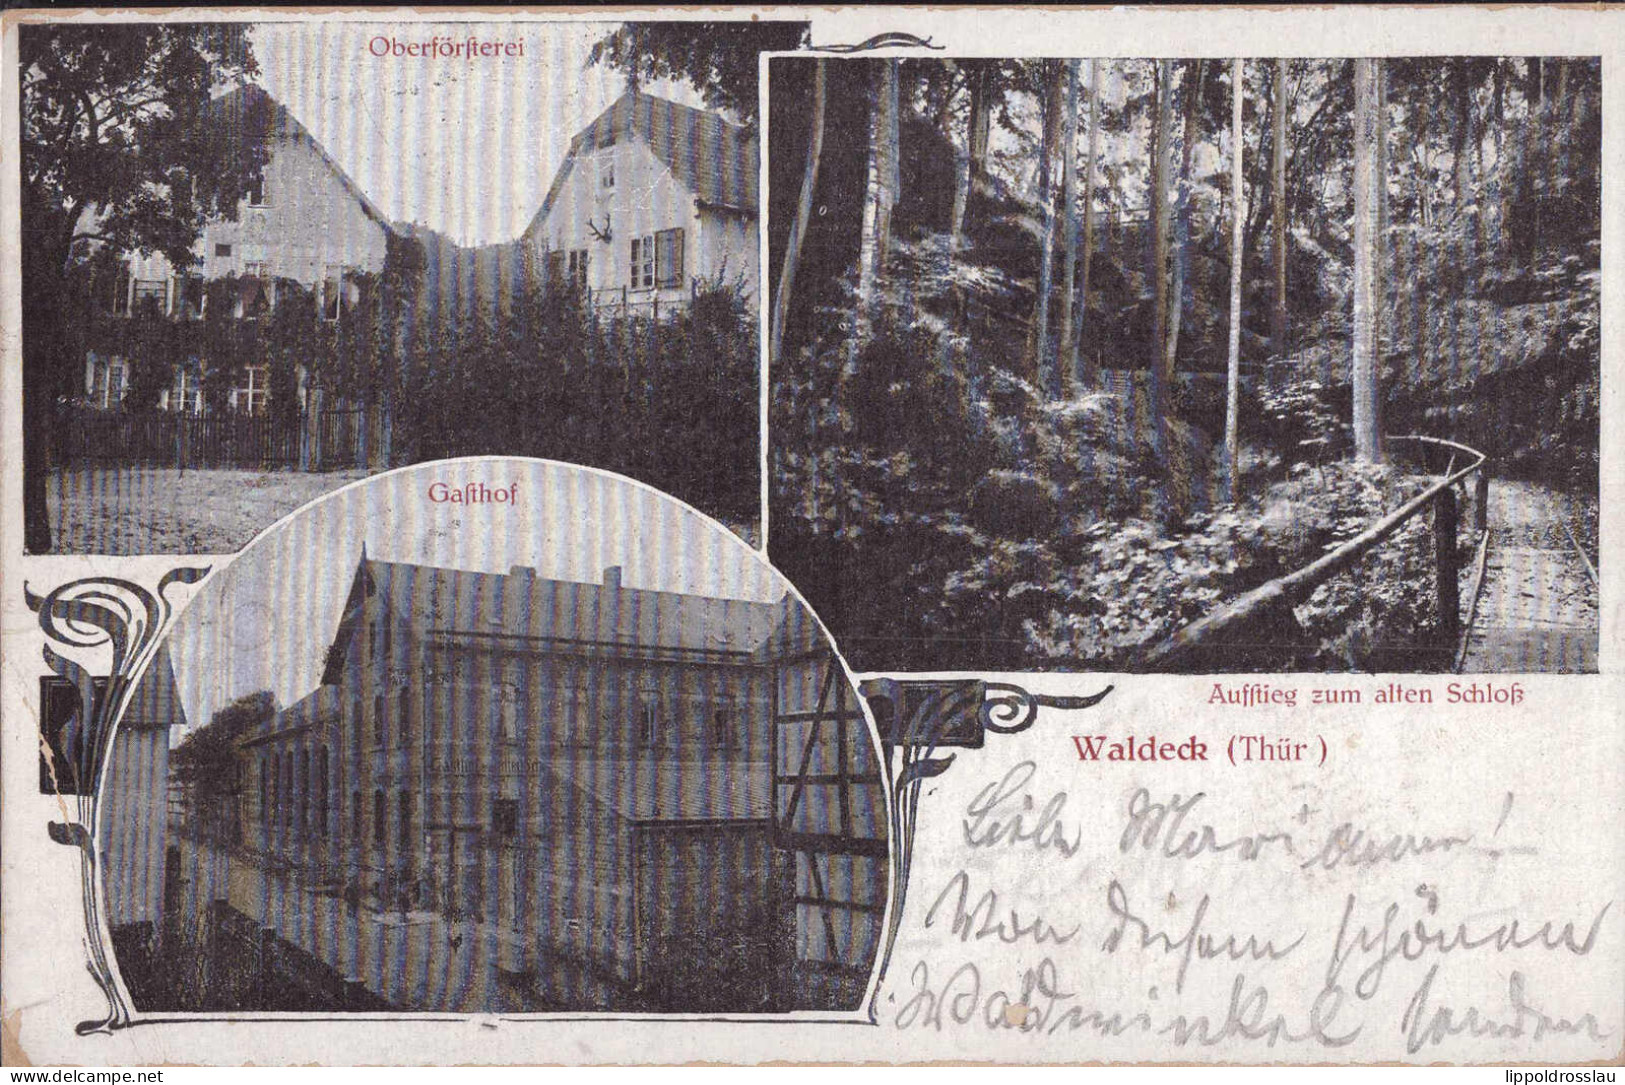 Oberförſterei
Gaſthof
Aufſtieg zum alten Schloß
Waldeck (Thür)
Liebe Marianne!
Von diesem schönen
Waldwinkel senden
www.delcampe.net
lippoldrosslau